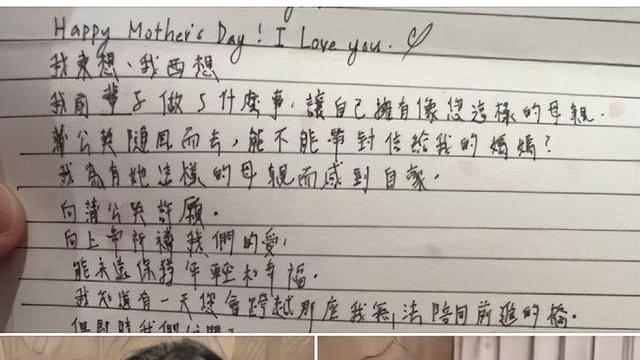 Happy Mother's Day! I Love you. ♡
我東想、我西想
我前輩子做了什麼事,讓自己擁有像您這樣的母親.
蒲公英隨風而去,能不能帶封信給我的媽媽?
我為有她這樣的母親而感到自豪.
向蒲公英許願.
向上帝祈禱我們的愛,
能永遠保持年輕和幸福.
我知道有一天您會跨越那座我無法陪同前進的橋.
但即時我們分開